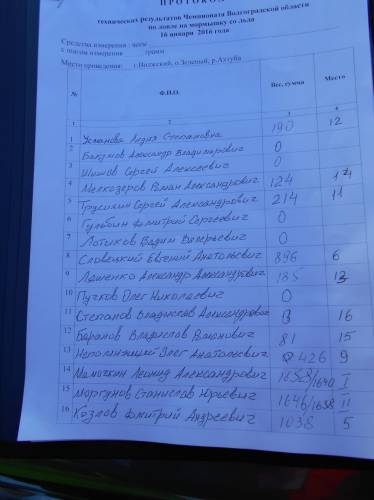 ПРОТОКОЛ
технических результатов Чемпионата Волгоградской области
по ловле на мормышку со льда
16 января 2016 года
Средства измерения : весы
с шагом измерения грамм
Место проведения: г.Волжский, о.Зеленый, р.Ахтуба
№ Ф.И.О. Вес, сумма Место
1 2 3 4
1 Усманова Лидия Степановна 190 12
2 Бакумов Александр Владимирович 0
3 Шишов Сергей Алексеевич 0
4 Мелкозеров Роман Александрович 124 14
5 Трусихин Сергей Александрович 214 11
6 Дмитрий Сергеевич 0
7 Лотиков Вадим Валерьевич 0
8 Словецкий Евгений Анатольевич 896 6
9 Ляшенко Александр Александрович 185 13
10 Пучков Олег Николаевич 0
11 Степанов Владислав Александрович 16
12 Баранов Владислав 81 15
13 Непомнящий Олег Анатольевич 426 9
14 Мамочкин Леонид Александрович 1658/1640 I
15 Моргунов Станислав Юрьевич 1646/1638 II
16 Козлов Дмитрий Андреевич 1038 5